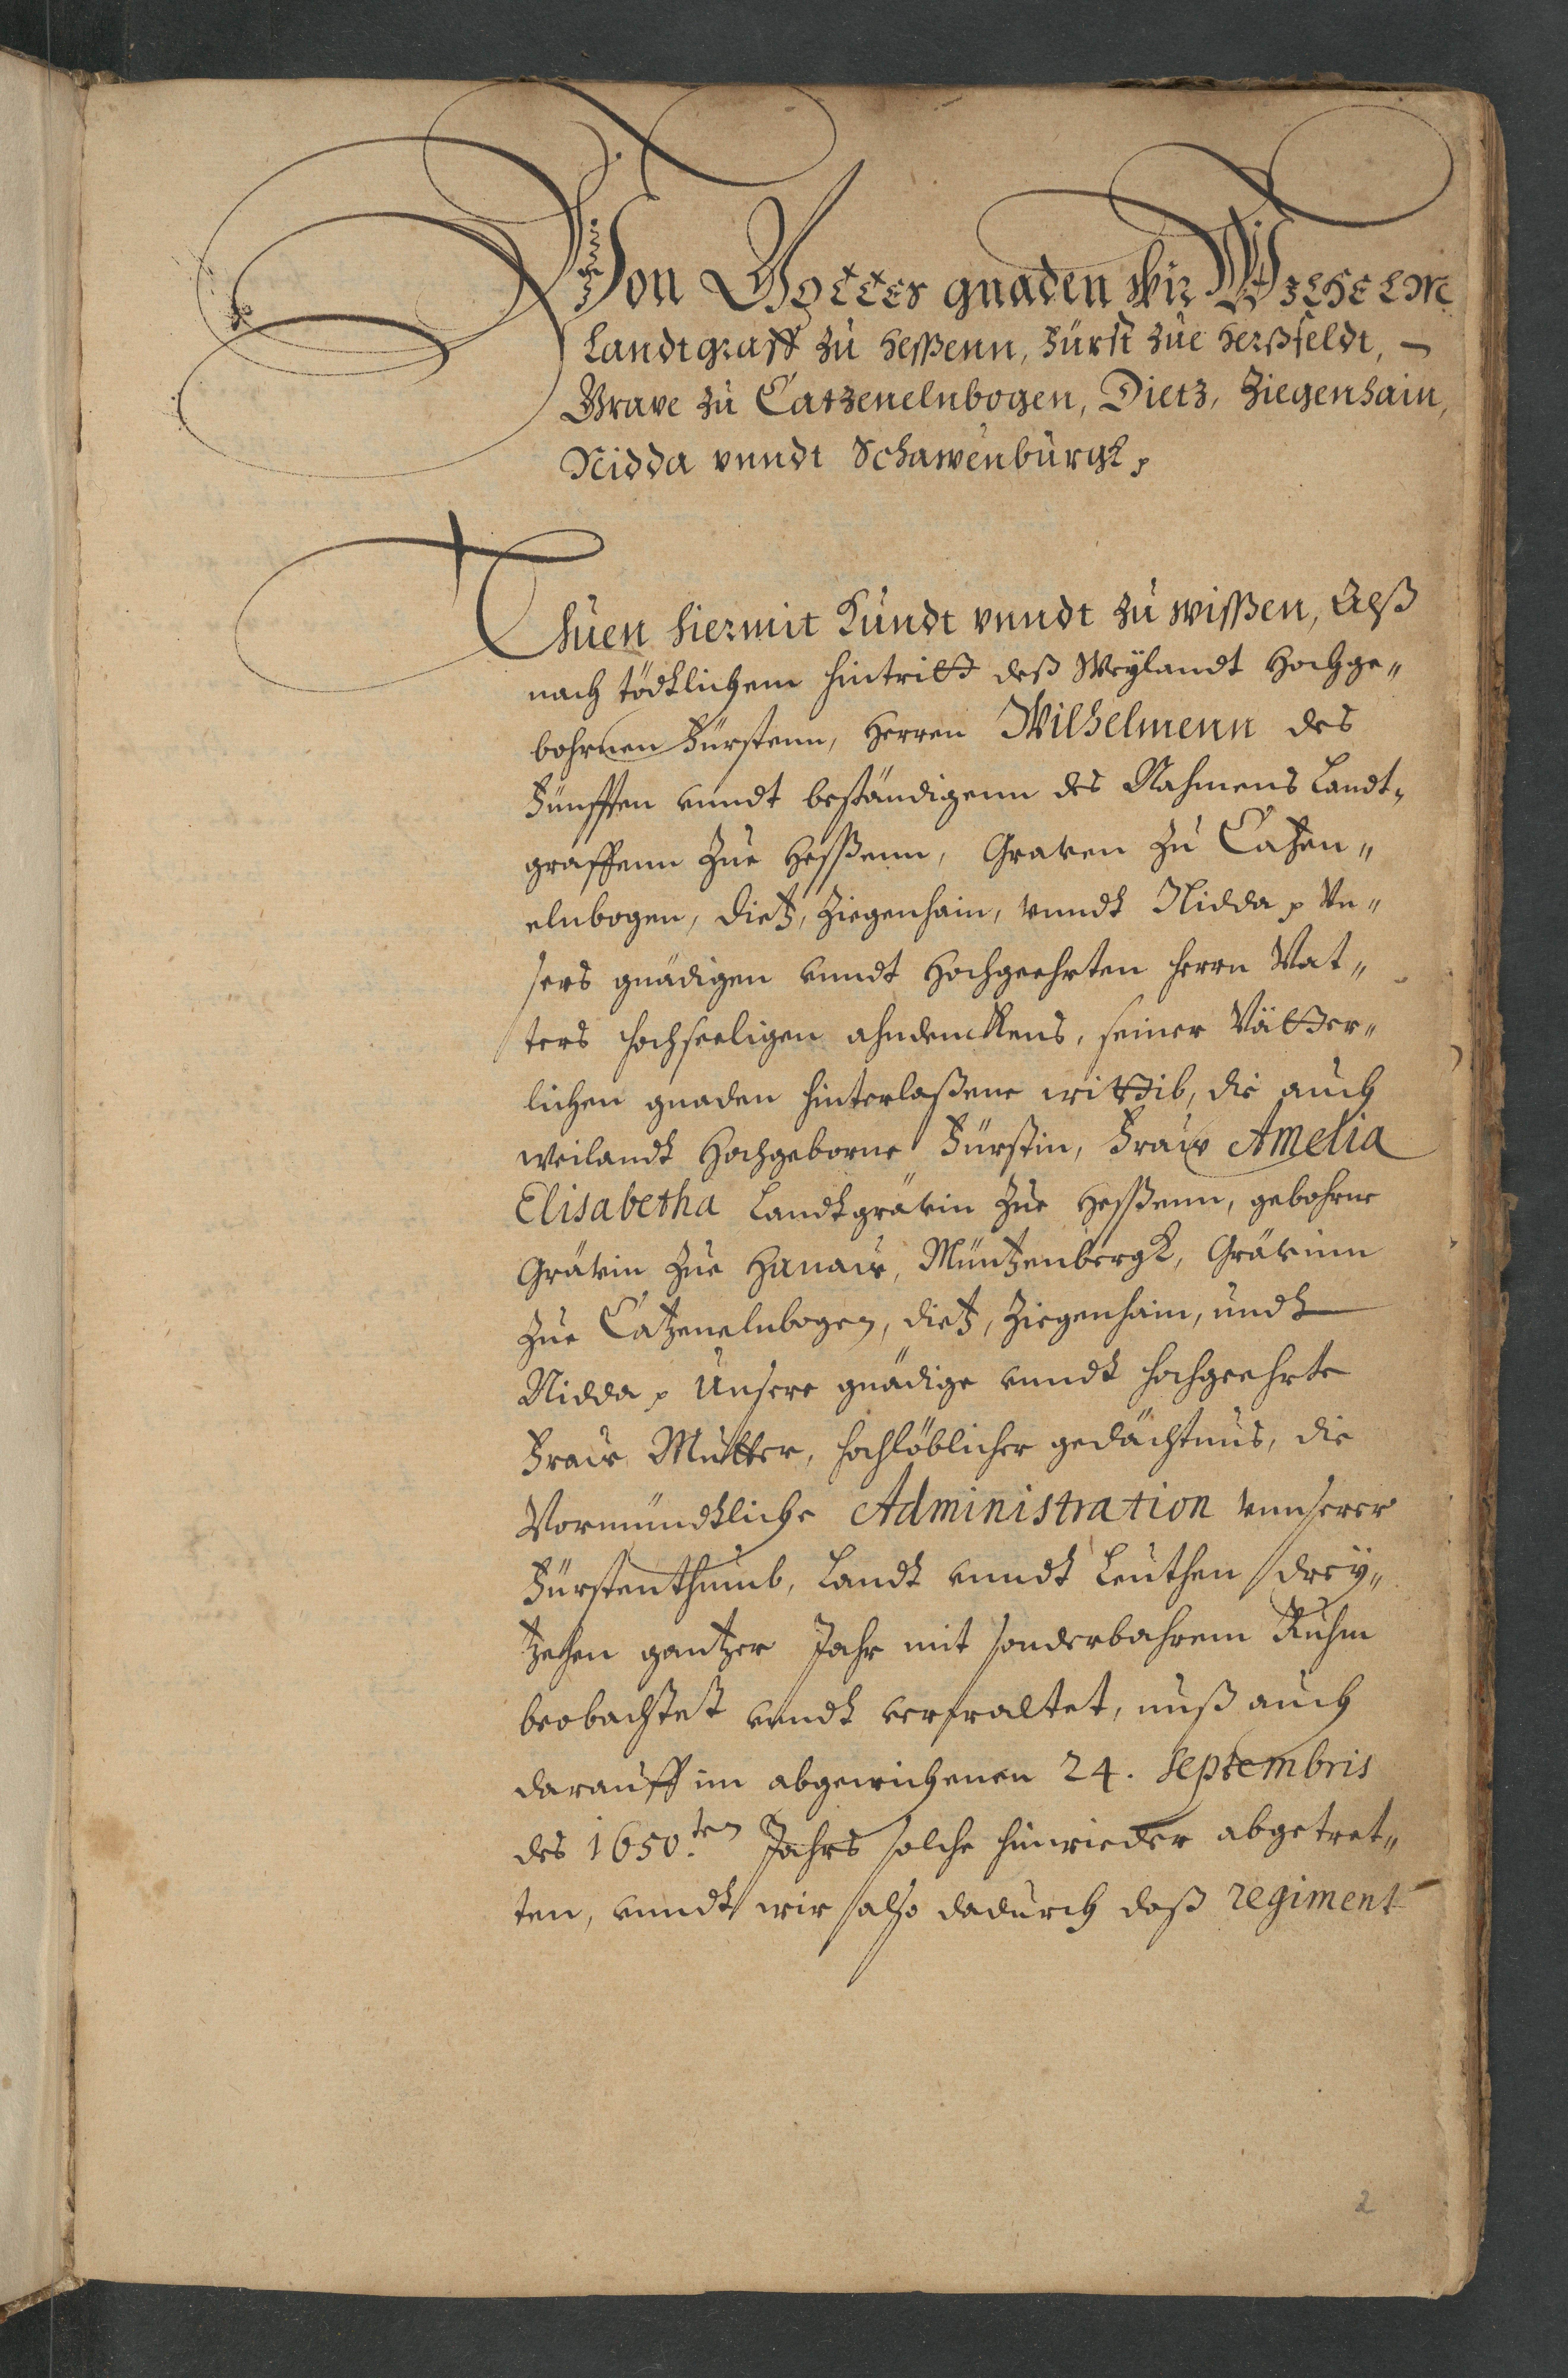 Von Gottes gnaden wir Wilhelm
Landtgraff zu Heßenn, Fürst zue Herßfeldt,
Grave zu Catzenelnbogen, Dietz, Ziegenhain,
Nidda vnndt Schawenburgk,
Thuen hiermit Kundt vnndt zu wißen, Alß
nach tödtlichem hintritt deß Weylandt Hochge„
bohrnen Fürstenn, Herren Wilhelmenn des
Fünfften vnndt beständigenn des Nahmens Landt„
graffenn zue Heßenn, Graven zu Catzen„
elnbogen, Dietz, Ziegenhain, vnndt Nidda Vn„
sers gnädigen vnndt Hochgeehrten Herrn Vat„
ters hochseeligen ahndenckens, seiner Vätter„
lichen gnaden hinterlaßene wittib, die auch
weilandt Hochgeborne Fürstin, Fraw Amelia
Elisabetha Landtgrävin zue Heßenn, gebohrne
Grävin zue Hanaw, Müntzenbergk, Grävinn
zue Catzenelnbogen, Dietz, Ziegenhain, undt
Nidda Unsere gnädige vnndt hochgeehrte
Fraw Mutter, hochlöblicher gedächtnus, die
Vormundtliche Administration vnnserer
Fürstenthumb, Landt vnndt Leuthen drey„
tzehen gantzer Jahr mit sonderbahrem Ruhm
beobachtet vnndt verwaltet, nuß auch
darauff im abgewichenen 24. Septembris
des 1650.ten Jahrs solche hinwieder abgetret„
ten, vnndt wir also dadurch daß regiment
2